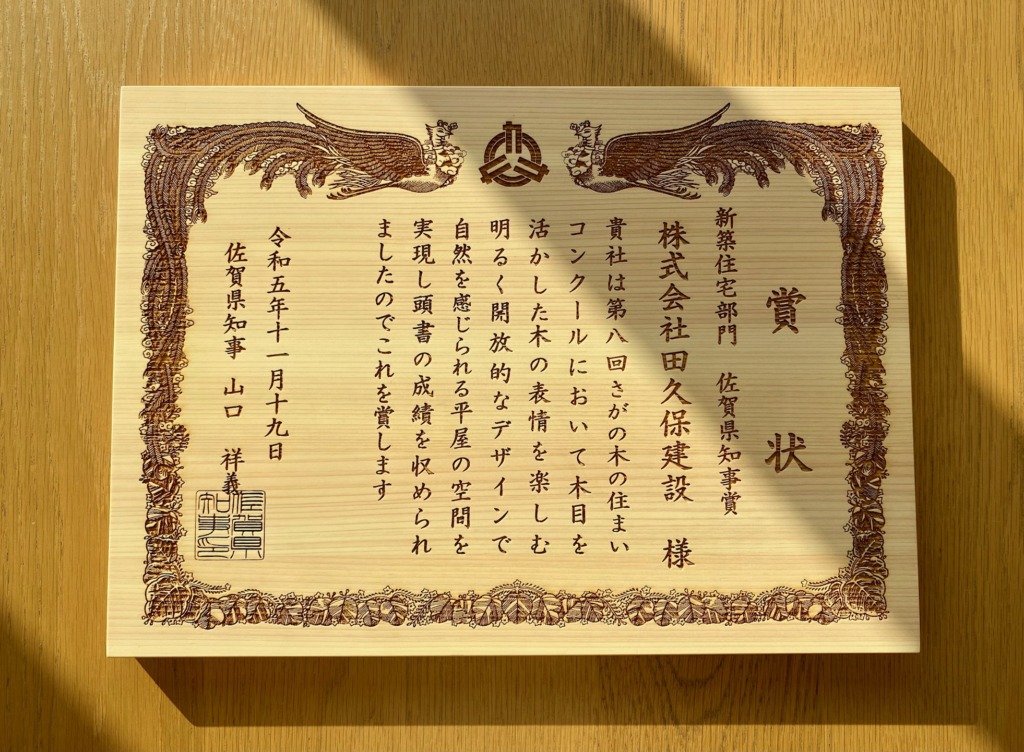 賞状
新築住宅部門 佐賀県知事賞
株式会社田久保建設 様
貴社は第八回さがの木の住まい
コンクールにおいて木目を
活かした木の表情を楽しむ
明るく開放的なデザインで
自然を感じられる平屋の空間を
実現し頭書の成績を収められ
ましたのでこれを賞します
令和五年十一月十九日
佐賀県知事 山口 祥義
佐賀県
知事印